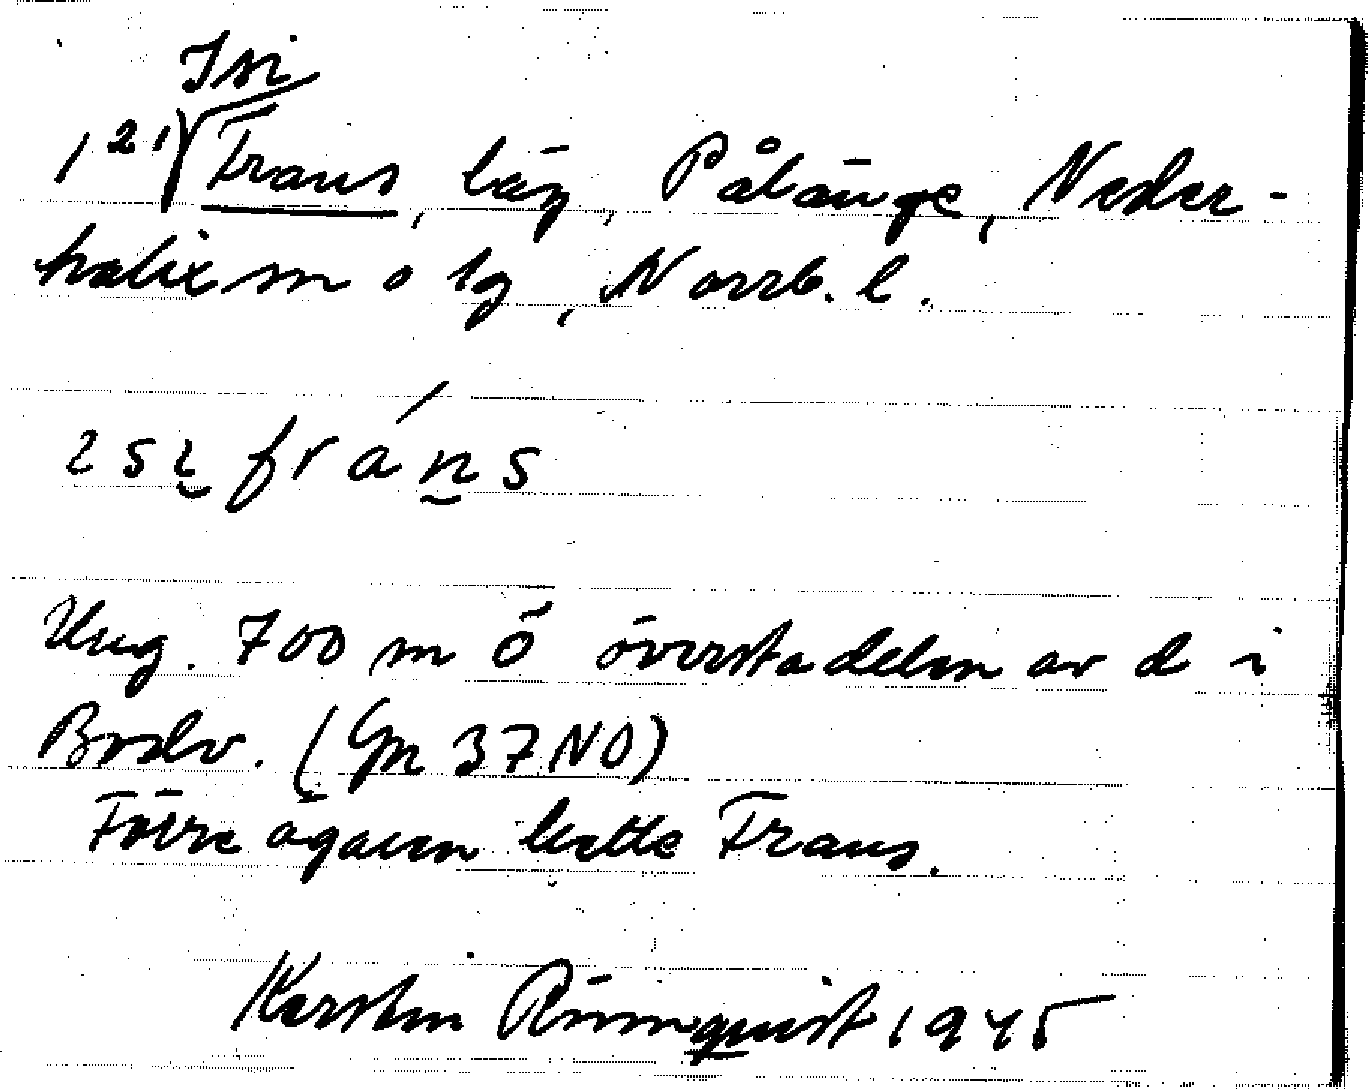 Isi
1²¹ Frans, läg, Pålänge, Neder-
kalix sn o tg, Norrb. l.
frans
Ung. 700 m Ö översta delen av d i
Bredv. (Gm 37 NO)
Förre ägaren hette Frans.
Kerstin Rönnquist 1945